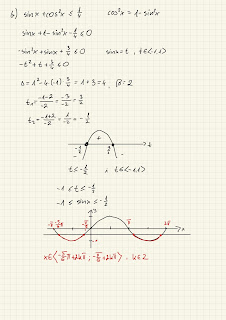 b) sinx + cos²x ≤ 1/4    cos²x = 1 - sin²x
sinx + 1 - sin²x - 1/4 ≤ 0
-sin²x + sinx + 3/4 ≤ 0    sinx = t , t∈⟨-1,1⟩
-t² + t + 3/4 ≤ 0
Δ = 1² - 4·(-1)·3/4 = 1 + 3 = 4 , √Δ = 2
t₁ = (-1-2)/-2 = -3/-2 = 3/2
t₂ = (-1+2)/-2 = 1/-2 = -1/2
+
- -
t
t ≤ -1/2 , t∈⟨-1,1⟩
-1 ≤ t ≤ -1/2
-1 ≤ sinx ≤ -1/2
-π π 2π x
x∈⟨-5/6π + 2kπ ; -π/6 + 2kπ⟩ , k∈Z